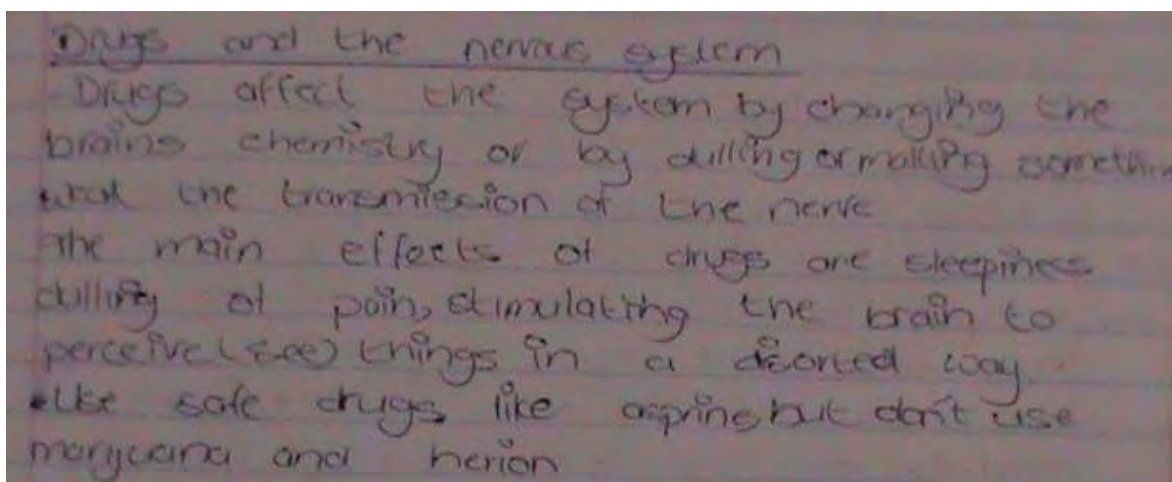 Drugs and the nervous system
Drugs affect the system by changing the
brains chemistry or by dulling or making somethin
the transmission of the nerve
The main effects of drugs are sleepiness
dulling of pain, stimulating the brain to
perceive (see) things in a disorted way
•Use safe drugs like asprine, but don't use
marijuana and herion